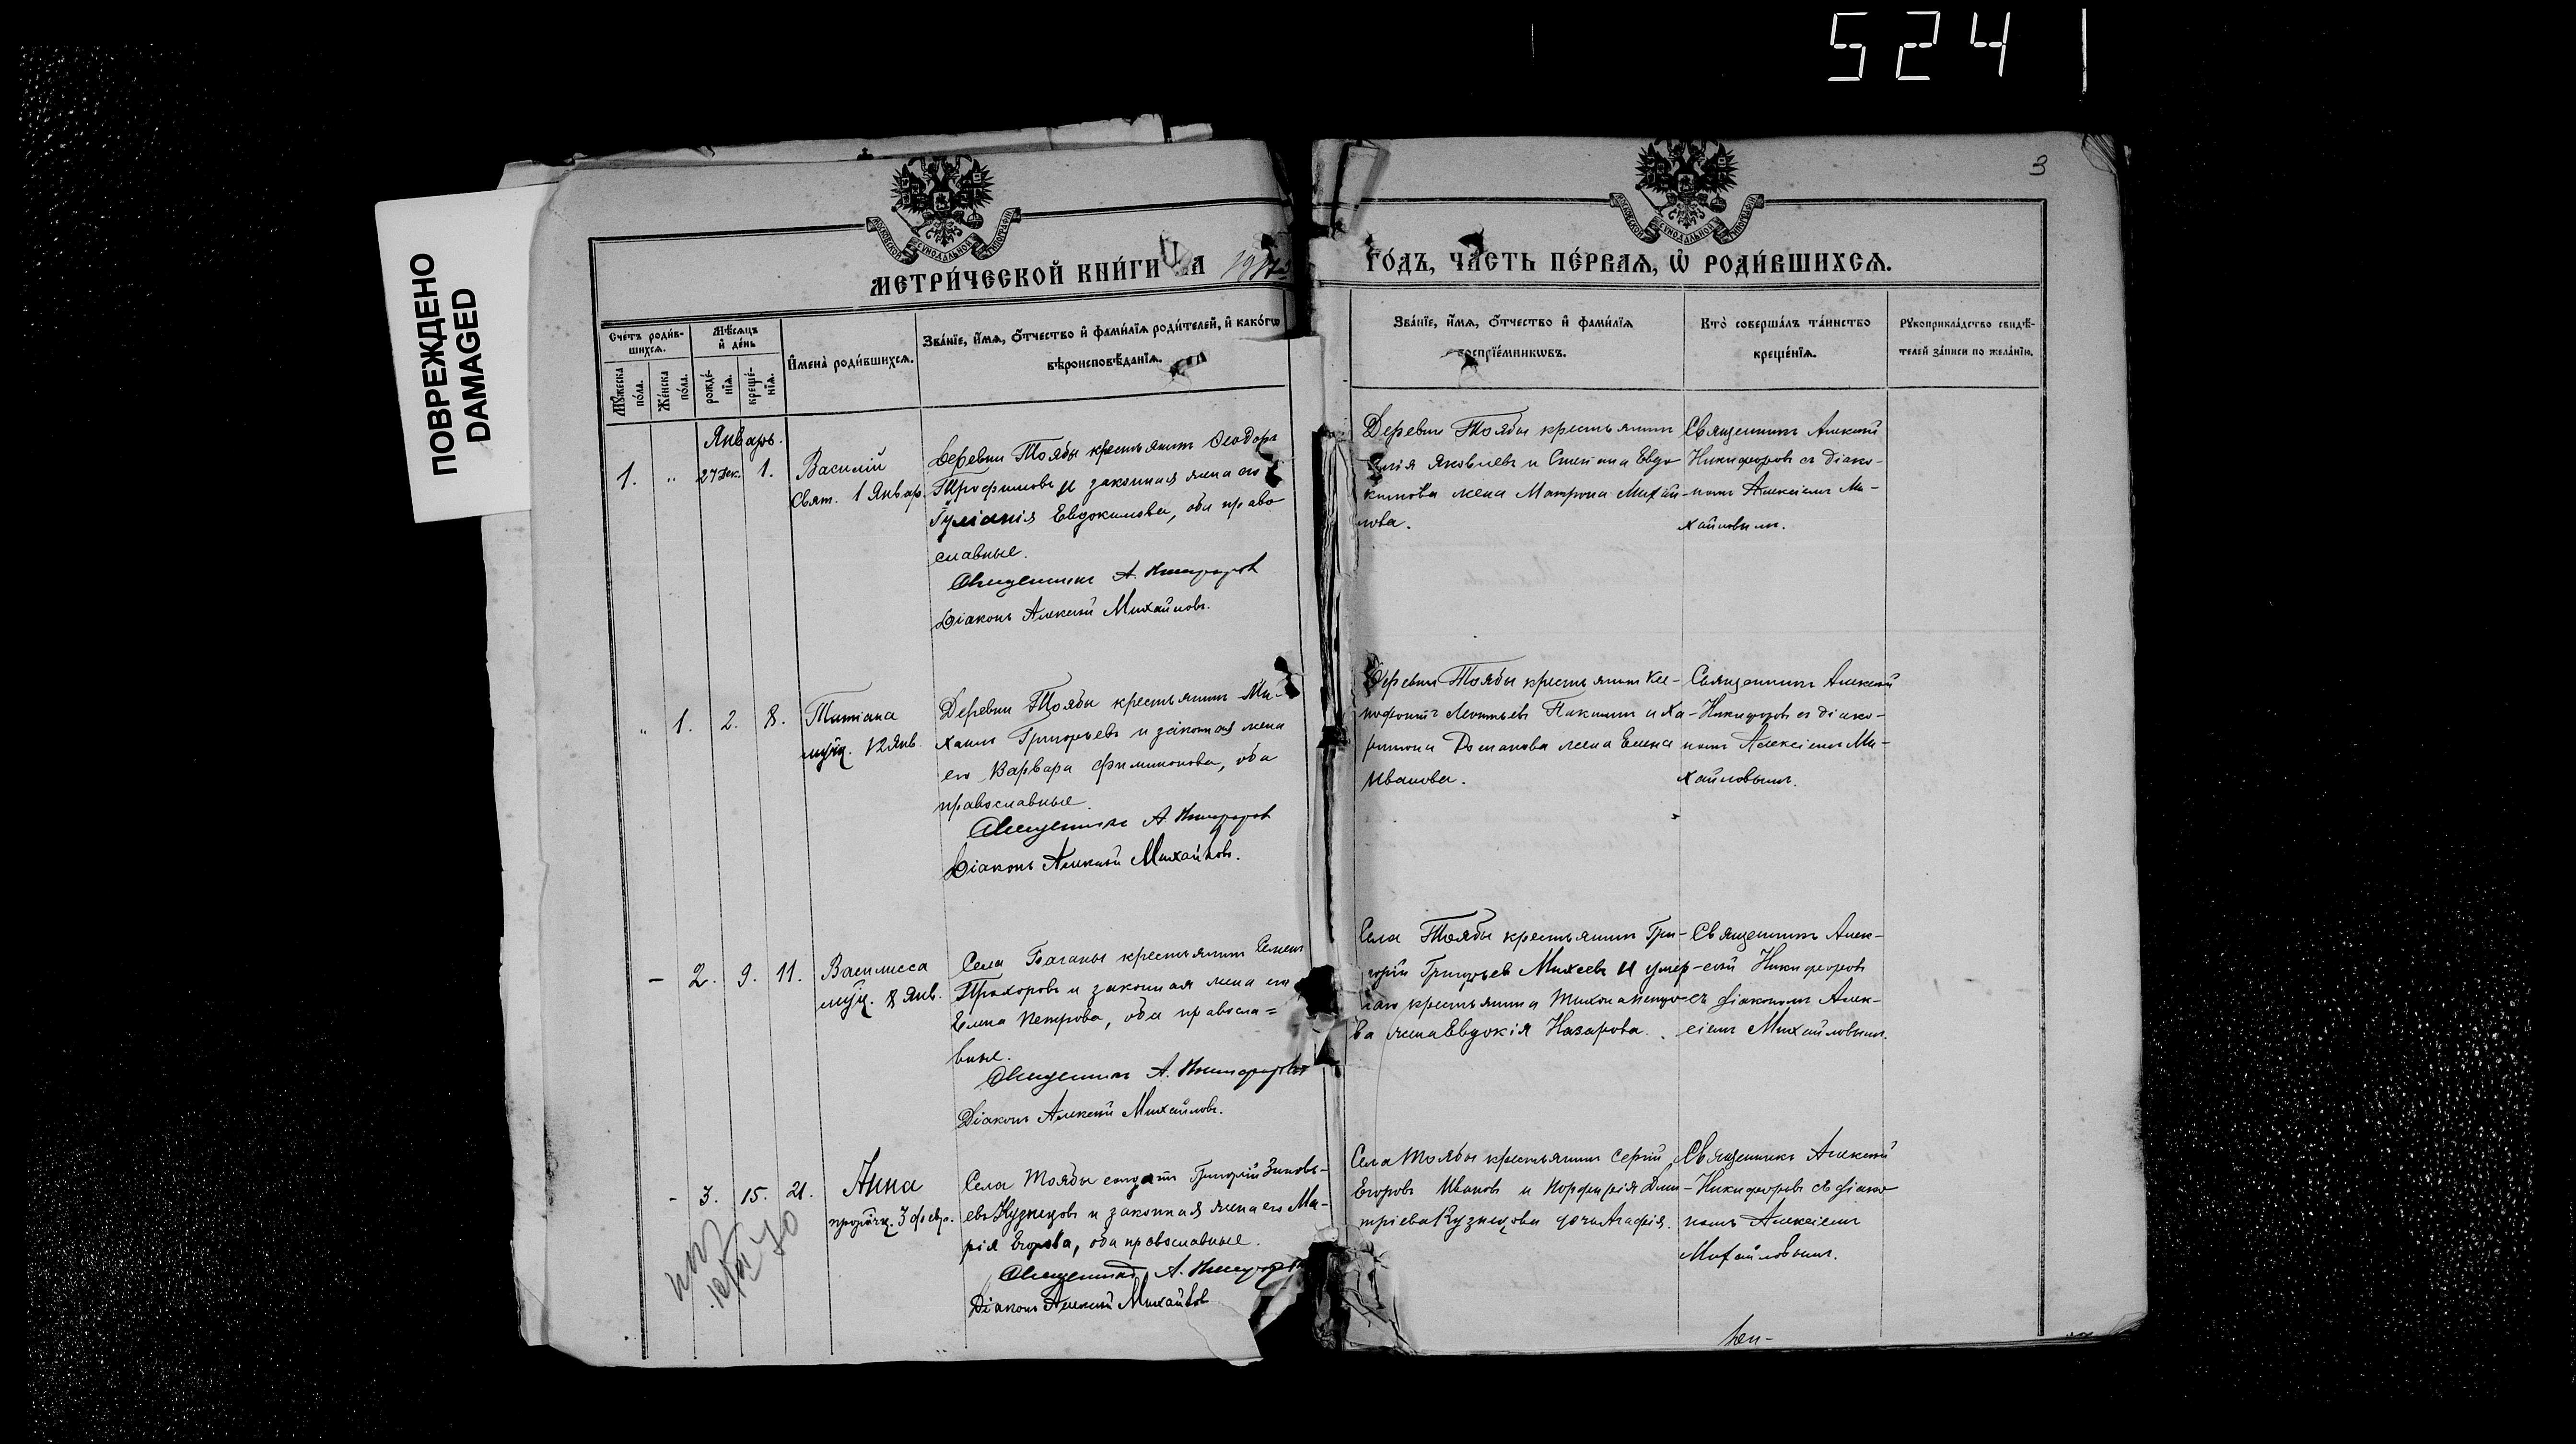 524
ПОВРЕЖДЕНО
DAMAGED
3
МОСКОВСКОЙ СУНОДАЛЬНОЙ ТИПОГРАФІИ
МОСКОВСКОЙ СУНОДАЛЬНОЙ ТИПОГРАФІИ
МЕТРИ́ЧЕСКОЙ КНИ́ГИ НА
ГО́ДЪ, ЧА́СТЬ ПЕ́РВАЯ, Ѡ РОДИ́ВШИХСЯ.
Сче́тъ роди́в-
шихся.
Мѣ́сяцъ
и де́нь
Му́жеска
по́ла.
Же́нска
по́ла.
рожде́-
нїя.
креще́-
нїя.
Имена̀ роди́вшихся.
Зва́нїе, и́мя, о́тчество и фами́лїя роди́телей, и како́гѡ
вѣроисповѣ́данїя.
Зва́нїе, и́мя, о́тчество и фами́лїя
воспрїе́мникѡвъ.
Кто̀ соверша́лъ та́инство
креще́нїя.
Рукоприкла́дство свидѣ́-
телей за́писи по жела́нїю.
Январь.
1. " 27 Дек. 1. Василій
Свят. 1 Январ.
Деревни Тоябы крестьянинъ Ѳеодоръ
Трофимовъ и законная жена его
Іуліанія Евдокимова, оба право
славные.
Священникъ А. Никифоровъ
Діаконъ Алексѣй Михайловъ.
Деревни Тоябы крестьянинъ
Яковлевъ и Степана Евдо
кимова жена Матрона Михай-
лова.
Священникъ Алексѣй
Никифоровъ съ діако-
номъ Алексіемъ Ми-
хайловымъ.
" 1. 2. 8. Татіана
муч. 12 Янв.
Деревни Тоябы крестьянинъ Ми-
хаилъ Григорьевъ и законная жена
его Варвара Филимонова, оба
православные.
Священникъ А. Никифоровъ
Діаконъ Алексѣй Михайловъ.
Деревни Тоябы крестьянинъ Ксе-
нофонтъ Леонтьевъ и Ха-
ритона Романова жена Елена
Иванова.
Священникъ Алексѣй
Никифоровъ съ діако-
номъ Алексіемъ Ми-
хайловымъ.
- 2. 9. 11. Василисса
муч. 8 Янв.
Села Багана крестьянинъ Семенъ
Прохоровъ и законная жена его
Елена Петрова, оба правосла=
вные.
Священникъ А. Никифоровъ
Діаконъ Алексѣй Михайловъ.
Села Тоябы крестьянинъ Гри-
горій Григорьев Михеевъ и умер-
шаго крестьянина Тихона
ва жена Евдокія Назарова.
Священникъ Алек-
сѣй Никифоровъ
съ діакономъ Алек-
сіемъ Михайловымъ.
- 3. 15. 21. Анна
пророч. 3 февр.
Села Тоябы солдатъ Григорій Зиновь-
евъ Кузнецовъ и законная жена его Ма-
рія Егорова, оба православные.
Священникъ А. Никифоровъ
Діаконъ Алексѣй Михайлов
Села Тоябы крестьянинъ Сергій
Егоровъ Ивановъ и Порфирія Дми-
тріева Кузнецова дочь Агафія.
Священникъ Алексѣй
Никифоровъ съ діако
номъ Алексіемъ
Михайловымъ.